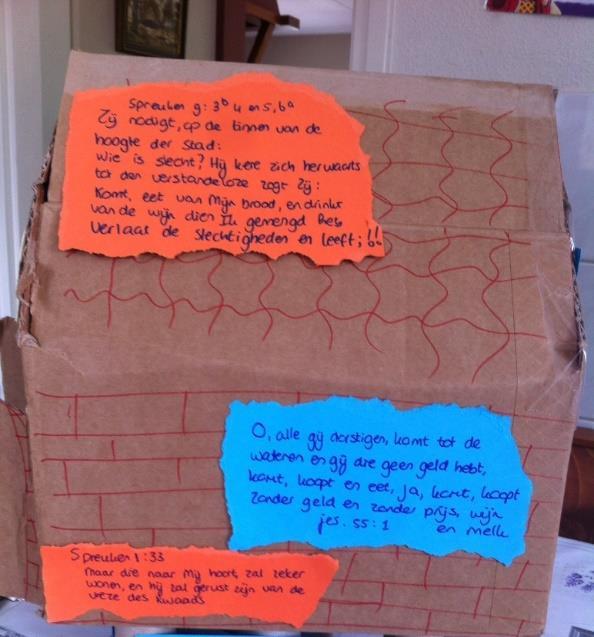 Spreuken 9: 3b 4 en 5, 6a
Zij nodigt, op de tinnen van de
hoogte der stad:
wie is slecht? Hij kere zich herwaarts
tot den verstandeloze zegt Zij:
Komt, eet van Mijn brood, en drinkt
van de wijn dien Ik gemengd heb
Verlaat de slechtigheden en leeft;!!
O, alle gij dorstigen, komt tot de
wateren en gij die geen geld hebt,
komt, koopt en eet, ja, komt, koopt
zonder geld en zonder prijs, wijn
jes. 55:1 en melk
Spreuken 1:33
maar die naar Mij hoort, zal zeker
wonen, en hij zal gerust zijn van de
vreze des kwaads